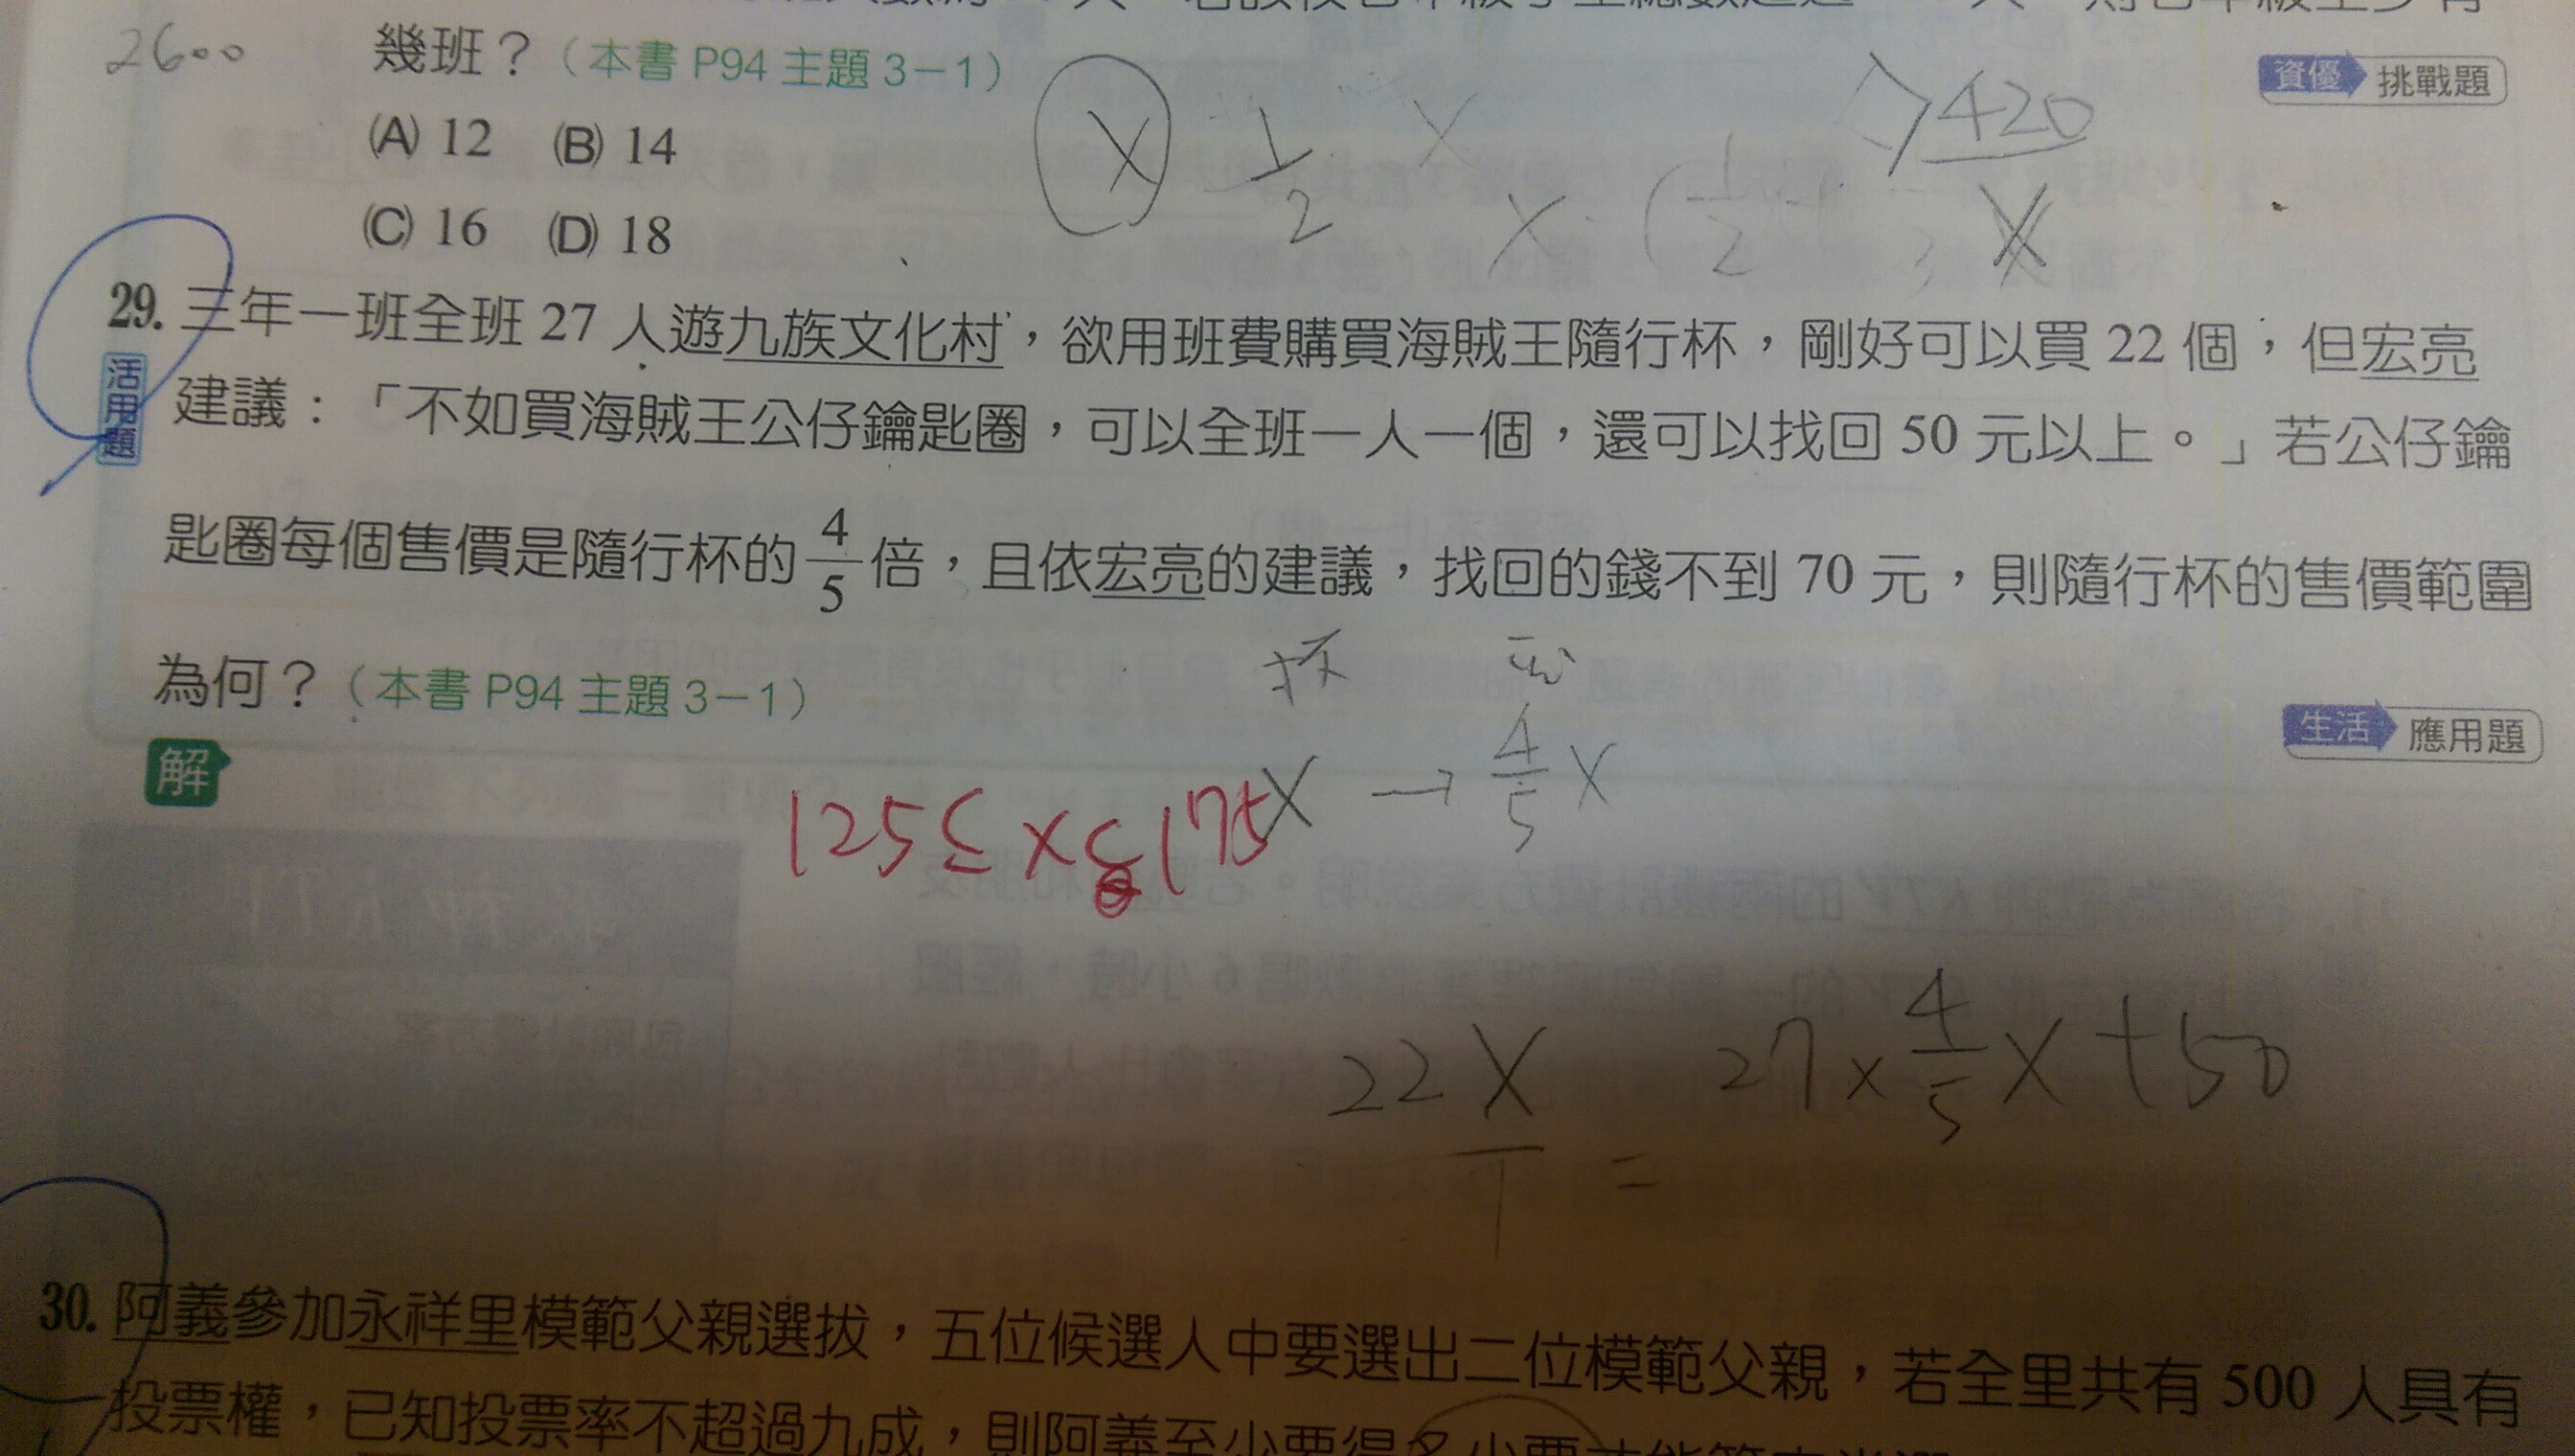 2600 幾班？（本書 P94 主題 3－1）
資優 挑戰題
(A) 12 (B) 14
X 1/2 X
X · ( 1/2
>420
X
(C) 16 (D) 18
29. 三年一班全班 27 人遊九族文化村，欲用班費購買海賊王隨行杯，剛好可以買 22 個，但宏亮
活用題
建議：「不如買海賊王公仔鑰匙圈，可以全班一人一個，還可以找回 50 元以上。」若公仔鑰
匙圈每個售價是隨行杯的 4/5 倍，且依宏亮的建議，找回的錢不到 70 元，則隨行杯的售價範圍
為何？（本書 P94 主題 3－1）
生活 應用題
解
X → 4/5 X
125≤ X 175
22X = 27×4/5 X+50
30. 阿義參加永祥里模範父親選拔，五位候選人中要選出二位模範父親，若全里共有 500 人具有
投票權，已知投票率不超過九成，則阿義至少要得多少票才能